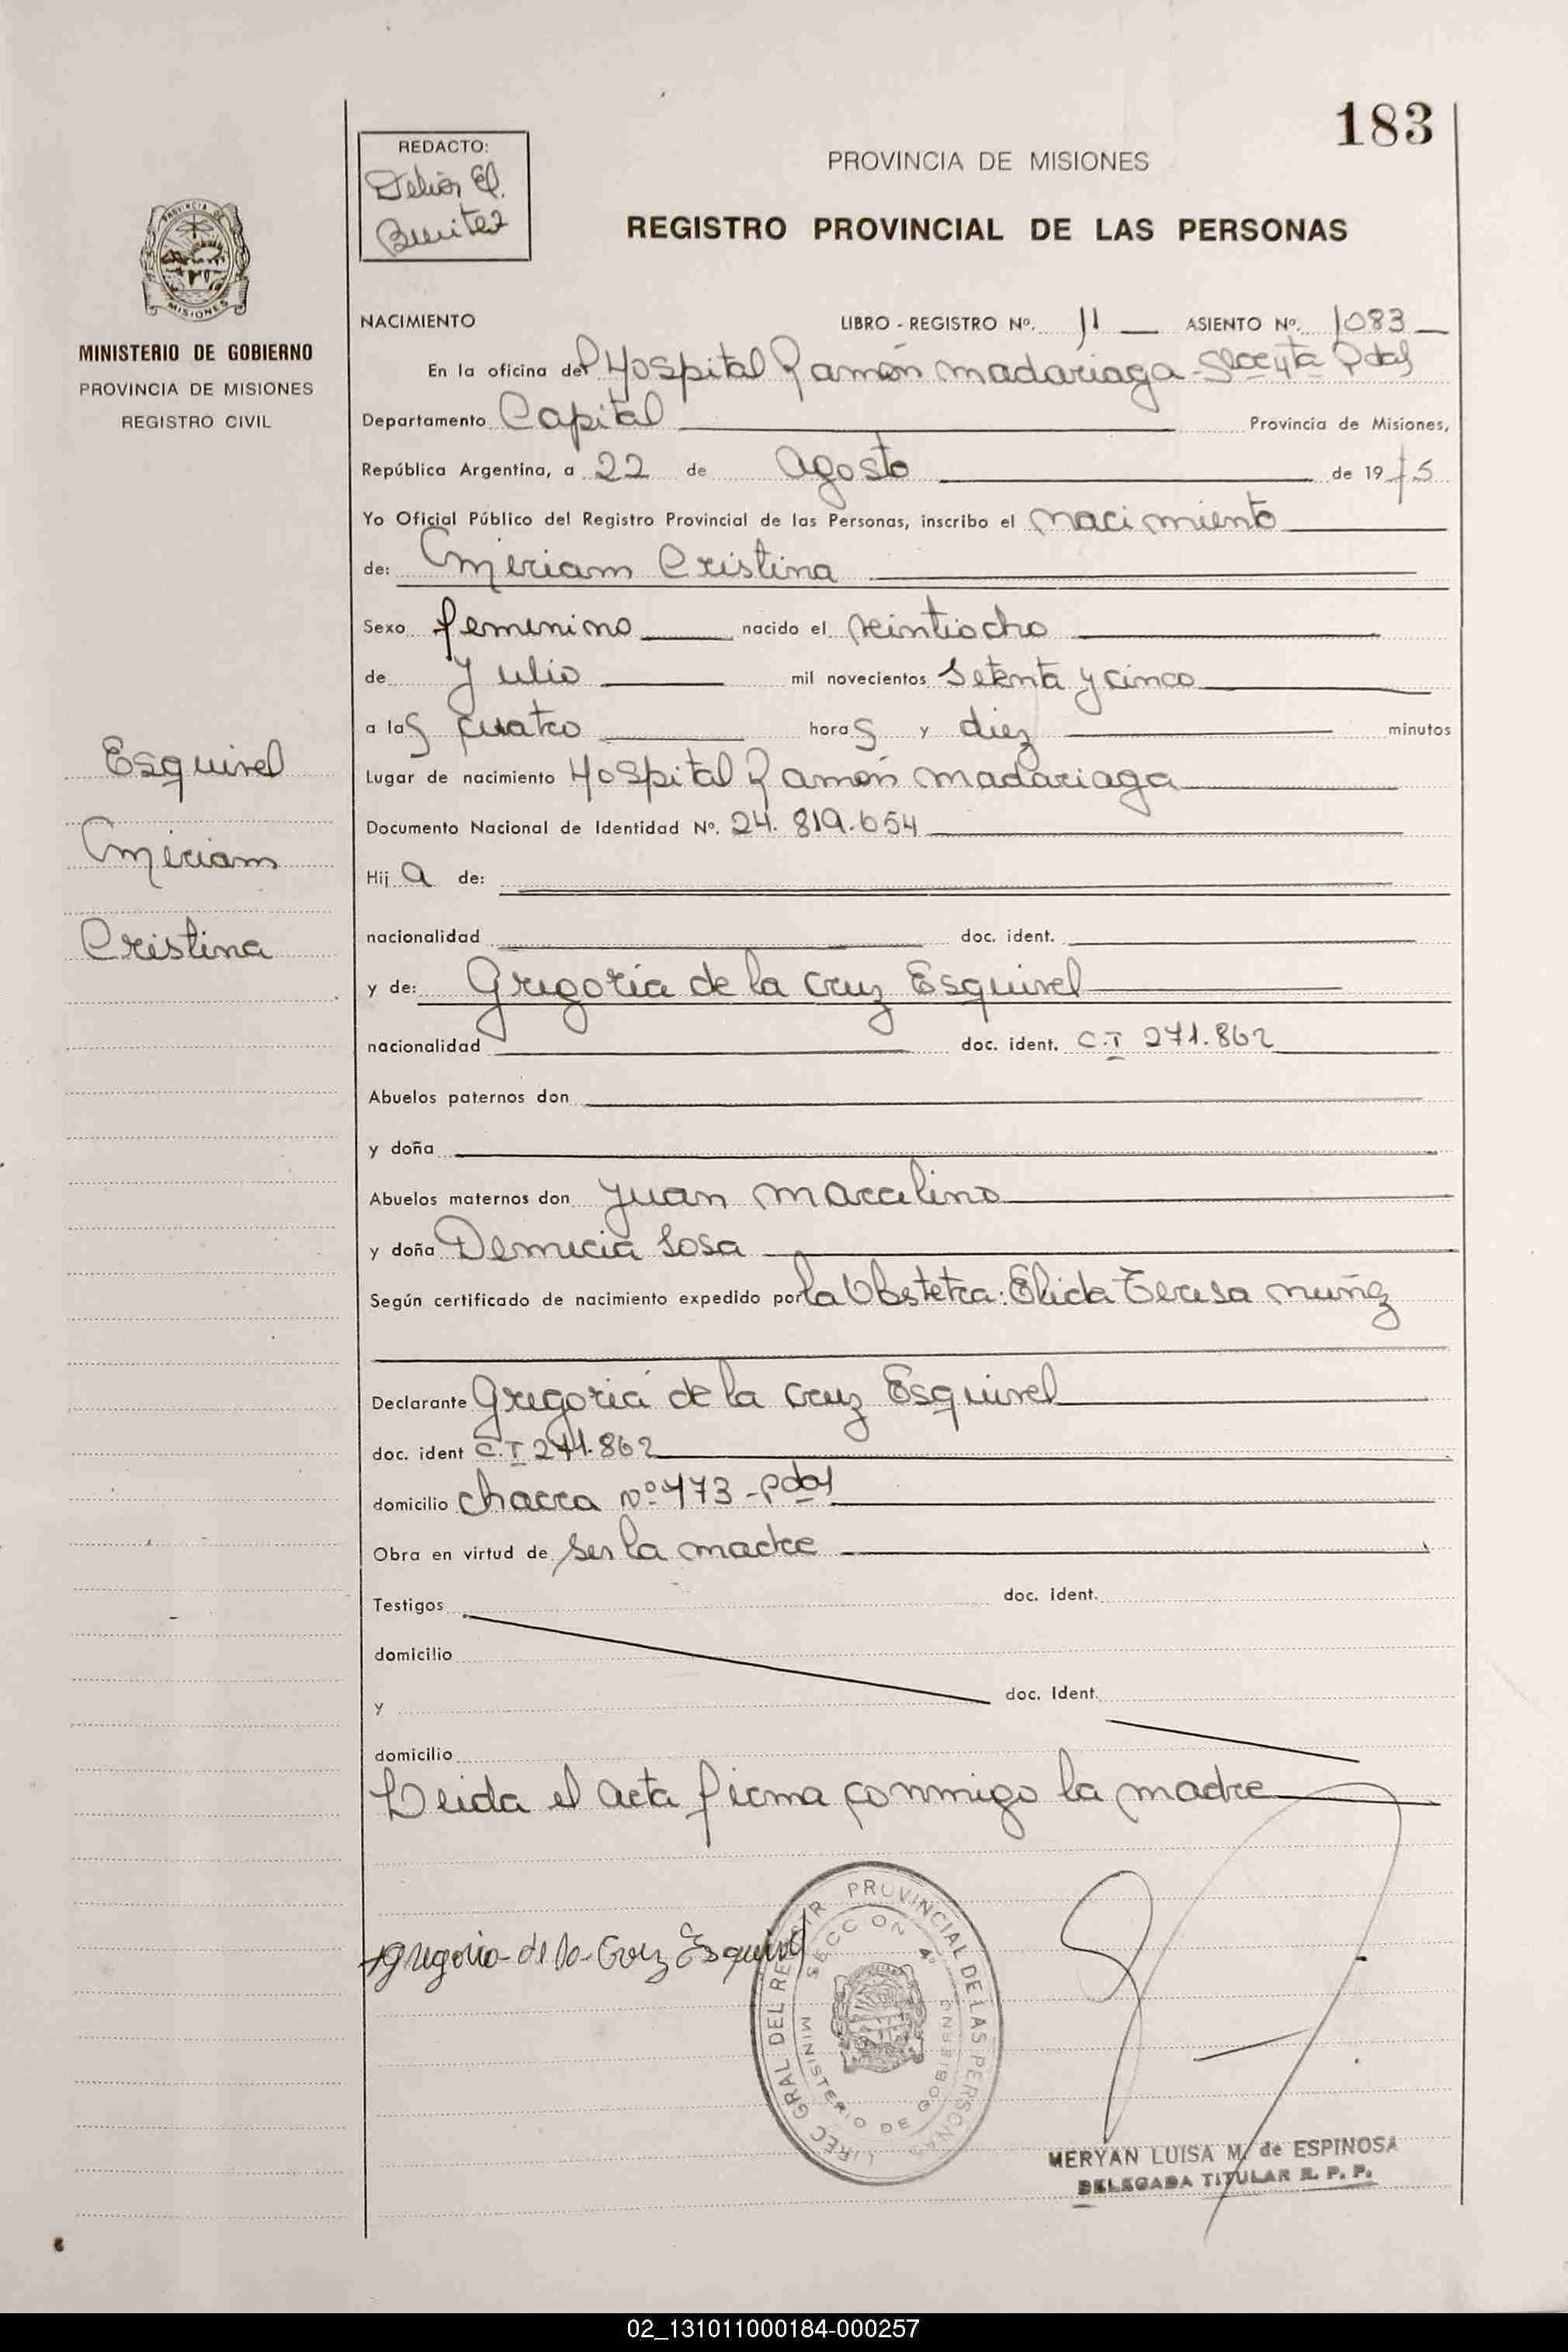 183
REDACTO:
Delia El.
Benitez
PROVINCIA DE MISIONES
REGISTRO PROVINCIAL DE LAS PERSONAS
PROVINCIA DE
MISIONES
MINISTERIO DE GOBIERNO
PROVINCIA DE MISIONES
REGISTRO CIVIL
NACIMIENTO LIBRO - REGISTRO Nº. 11 ASIENTO Nº. 1083
En la oficina del Hospital Ramón Madariaga - Pdas
Departamento Capital Provincia de Misiones,
República Argentina, a 22 de Agosto de 1975
Yo Oficial Público del Registro Provincial de las Personas, inscribo el nacimiento
de: Miriam Cristina
Sexo femenino nacido el veintiocho
de Julio mil novecientos setenta y cinco
a las cuatro horas y diez minutos
Lugar de nacimiento Hospital Ramón Madariaga
Documento Nacional de Identidad Nº. 24.819.654
Hija de:
nacionalidad doc. ident.
y de: Gregoria de la Cruz Esquivel
nacionalidad doc. ident. C.I 271.862
Abuelos paternos don
y doña
Abuelos maternos don Juan Marcelino
y doña Demicia Sosa
Según certificado de nacimiento expedido por la Obstetra: Elida Teresa Muñiz
Declarante Gregoria de la Cruz Esquivel
doc. ident C.I 271.862
domicilio chacra Nº 473 - Pdas
Obra en virtud de ser la madre
Testigos doc. ident.
domicilio
y doc. Ident.
domicilio
Leida el acta firma conmigo la madre
Esquivel
Miriam
Cristina
Gregoria de la Cruz Esquivel
DIREC GRAL DEL REGISTR PROVINCIAL DE LAS PERSONAS
SECCION 4ª
MINISTERIO DE GOBIERNO
MERYAN LUISA M. de ESPINOSA
DELEGADA TITULAR R. P. P.
02_131011000184-000257